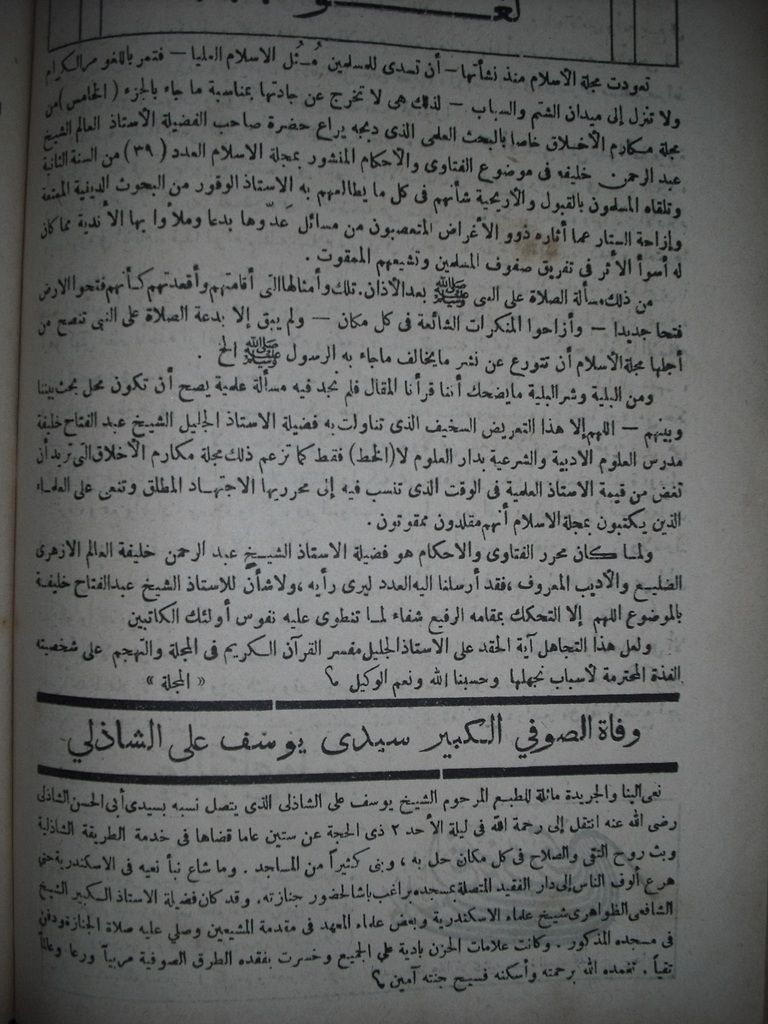 تعودت مجلة الاسلام منذ نشأتها — أن تسدى للمسلمين مُثُل الاسلام العليا — فتمر باللغو مر الكرام
ولا تنزل إلى ميدان الشتم والسباب — لذلك هى لا تخرج عن جادتها بمناسبة ما جاء بالجزء (الخامس) من
مجلة مكارم الأخلاق خاصا بالبحث العلمى الذى دبجه يراع حضرة صاحب الفضيلة الأستاذ العالم الشيخ
عبد الرحمن خليفه فى موضوع الفتاوى والأحكام المنشور بمجلة الاسلام العدد (٣٩) من السنة الثانية
وتلقاه المسلمون بالقبول والأريحية شأنهم فى كل ما يطالعهم به الاستاذ الوقور من البحوث الدينية الممتعة
وإزاحة الستار عما أثاره ذوو الأغراض المتعصبون من مسائل عدّوها بدعا وملأوا بها الأندية مما كان
له أسوأ الأثر فى تفريق صفوف المسلمين وتشيعهم الممقوت .
من ذلك مسألة الصلاة على النبى صلى الله عليه وسلم بعد الأذان. تلك وأمثالها التى أقامتهم وأقعدتهم كأنهم فتحوا الارض
فتحا جديدا — وأزاحوا المنكرات الشائعة فى كل مكان — ولم يبق إلا بدعة الصلاة على النبى تنصح من
أجلها مجلة الأسلام أن تتورع عن نشر ما يخالف ما جاء به الرسول صلى الله عليه وسلم الخ .
ومن البلية وشر البلية ما يضحك أننا قرأنا المقال فلم نجد فيه مسألة علمية يصح أن تكون محل بحث بيننا
وبينهم — اللهم إلا هذا التعريض السخيف الذى تناولت به فضيلة الاستاذ الجليل الشيخ عبد الفتاح خليفة
مدرس العلوم الادبية والشرعية بدار العلوم لا (الخط) فقط كما تزعم ذلك مجلة مكارم الأخلاق التى تريد أن
تغض من قيمة الاستاذ العلمية فى الوقت الذى تنسب فيه إلى محرريها الاجتهاد المطلق وتنعى على العلماء
الذين يكتبون بمجلة الاسلام أنهم مقلدون ممقوتون .
ولما كان محرر الفتاوى والاحكام هو فضيلة الاستاذ الشيخ عبد الرحمن خليفة العالم الازهرى
الضليع والأديب المعروف ، فقد أرسلنا اليه العدد ليرى رأيه ، ولا شأن للاستاذ الشيخ عبد الفتاح خليفة
بالموضوع اللهم إلا التحكك بمقامه الرفيع شفاء لما تنطوى عليه نفوس أولئك الكاتبين
ولعل هذا التجاهل آية الحقد على الاستاذ الجليل مفسر القرآن الكريم فى المجلة والتهجم على شخصيته
الفذة المحترمة لأسباب نجهلها وحسبنا الله ونعم الوكيل ؟ « المجلة »
وفاة الصوفي الكبير سيدى يوسف على الشاذلي
نعى الينا والجريدة ماثلة للطبع المرحوم الشيخ يوسف على الشاذلى الذى يتصل نسبه بسيدى أبى الحسن الشاذلى
رضى الله عنه انتقل إلى رحمة الله فى ليلة الأحد ٢ ذى الحجة عن ستين عاما قضاها فى خدمة الطريقة الشاذلية
وبث روح التقى والصلاح فى كل مكان حل به ، وبنى كثيراً من المساجد . وما شاع نبأ نعيه فى الاسكندرية حتى
هرع ألوف الناس إلى دار الفقيد المتصلة بمسجده براغب باشا لحضور جنازته. وقد كان فضيلة الاستاذ الكبير الشيخ
الشافعى الظواهرى شيخ علماء الاسكندرية وبعض علماء المعهد فى مقدمة المشيعين وصلي عليه صلاة الجنازة ودفن
فى مسجده المذكور . وكانت علامات الحزن بادية علي الجميع وخسرت بفقده الطرق الصوفية مربياً ورعا وعالماً
تقياً . تغمده الله برحمته وأسكنه فسيح جنته آمين ؟